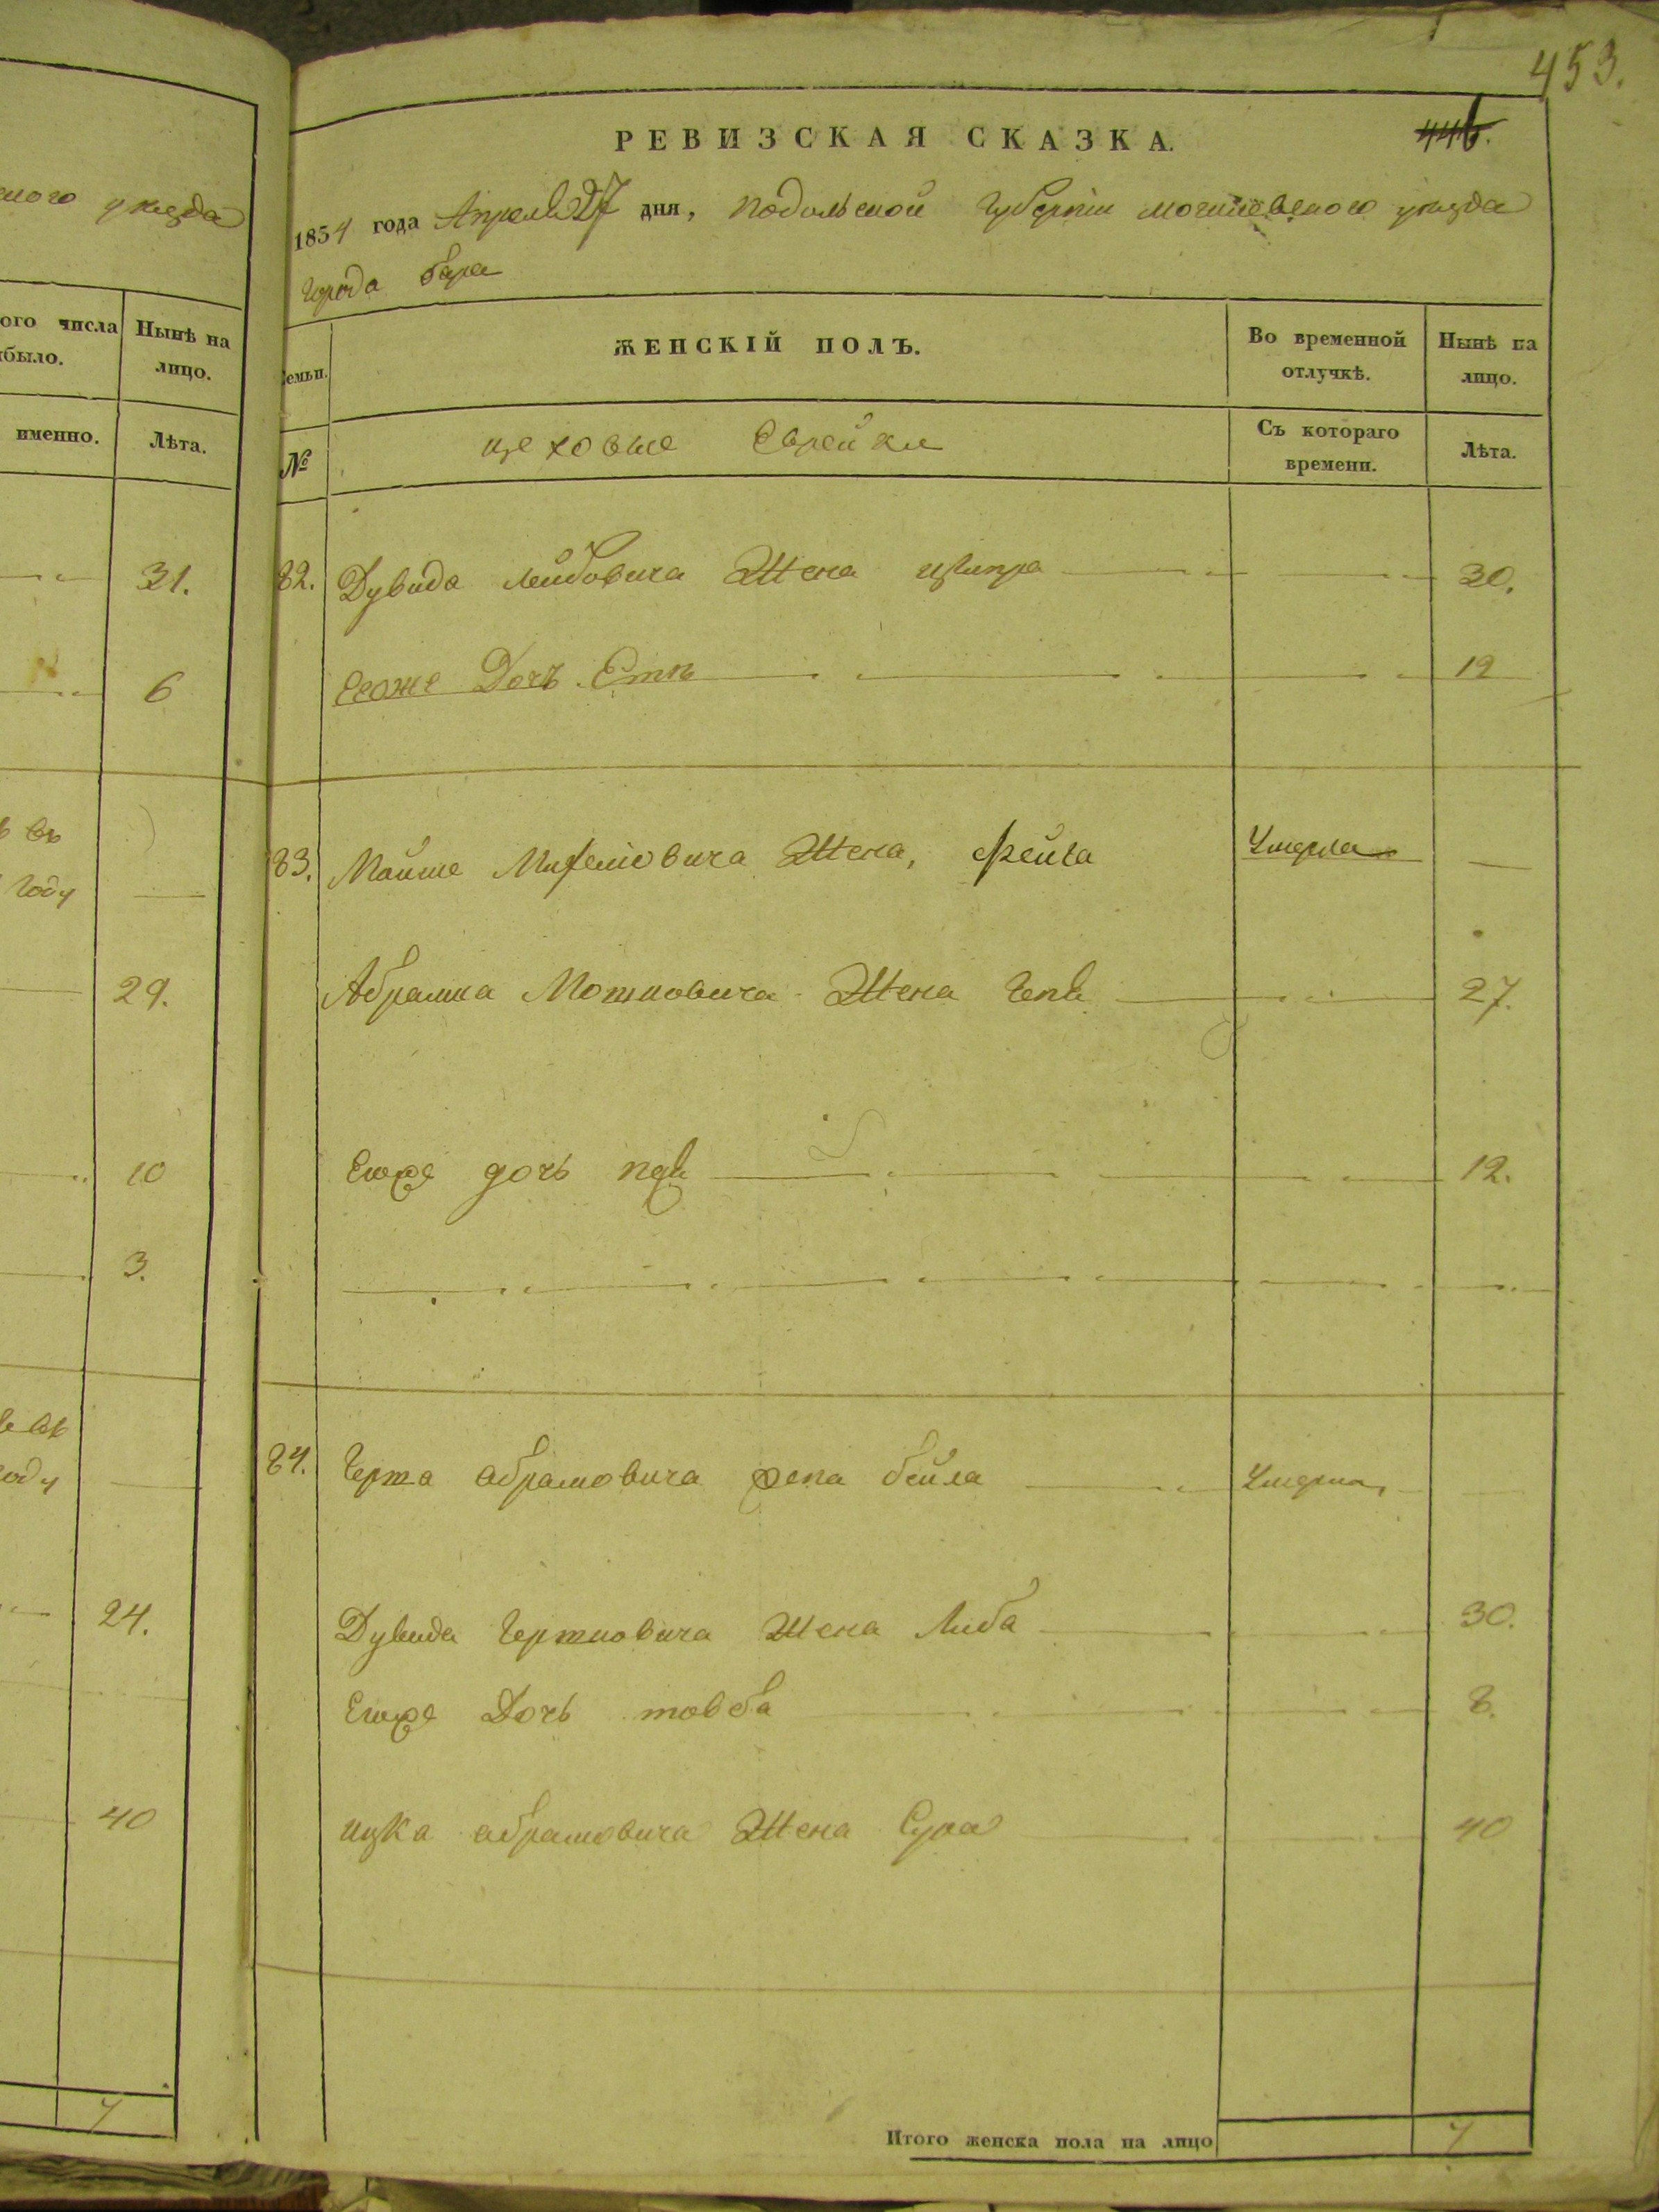 453.
446.
РЕВИЗСКАЯ СКАЗКА.
1854 года Апреля 27 дня, Подольской Губернии Могилевского уезда
города бара
Семьи.
ЖЕНСКІЙ ПОЛЪ.
Во временной отлучкѣ.
Нынѣ на лицо.
№
цеховые Еврейки
Съ котораго времени.
Лѣта.
82. Дувида Лейбовича Жена 30.
Егоже Дочь Етя 12
83. Мошке Жена, Фейга Умерла —
Абрамка Мошковича Жена 27.
Егоже дочь 12.
84. Герша абрамовича жена бейла Умерла —
Дувида Гершковича Жена Либа 30.
Егоже Дочь товба 8.
ицка абрамовича Жена Сура 40
Итого женска пола на лицо 7
уезда
ого числа
было.
Нынѣ на
лицо.
именно.
Лѣта.
31.
6
въ
году
29.
10
3.
году
24.
40
7